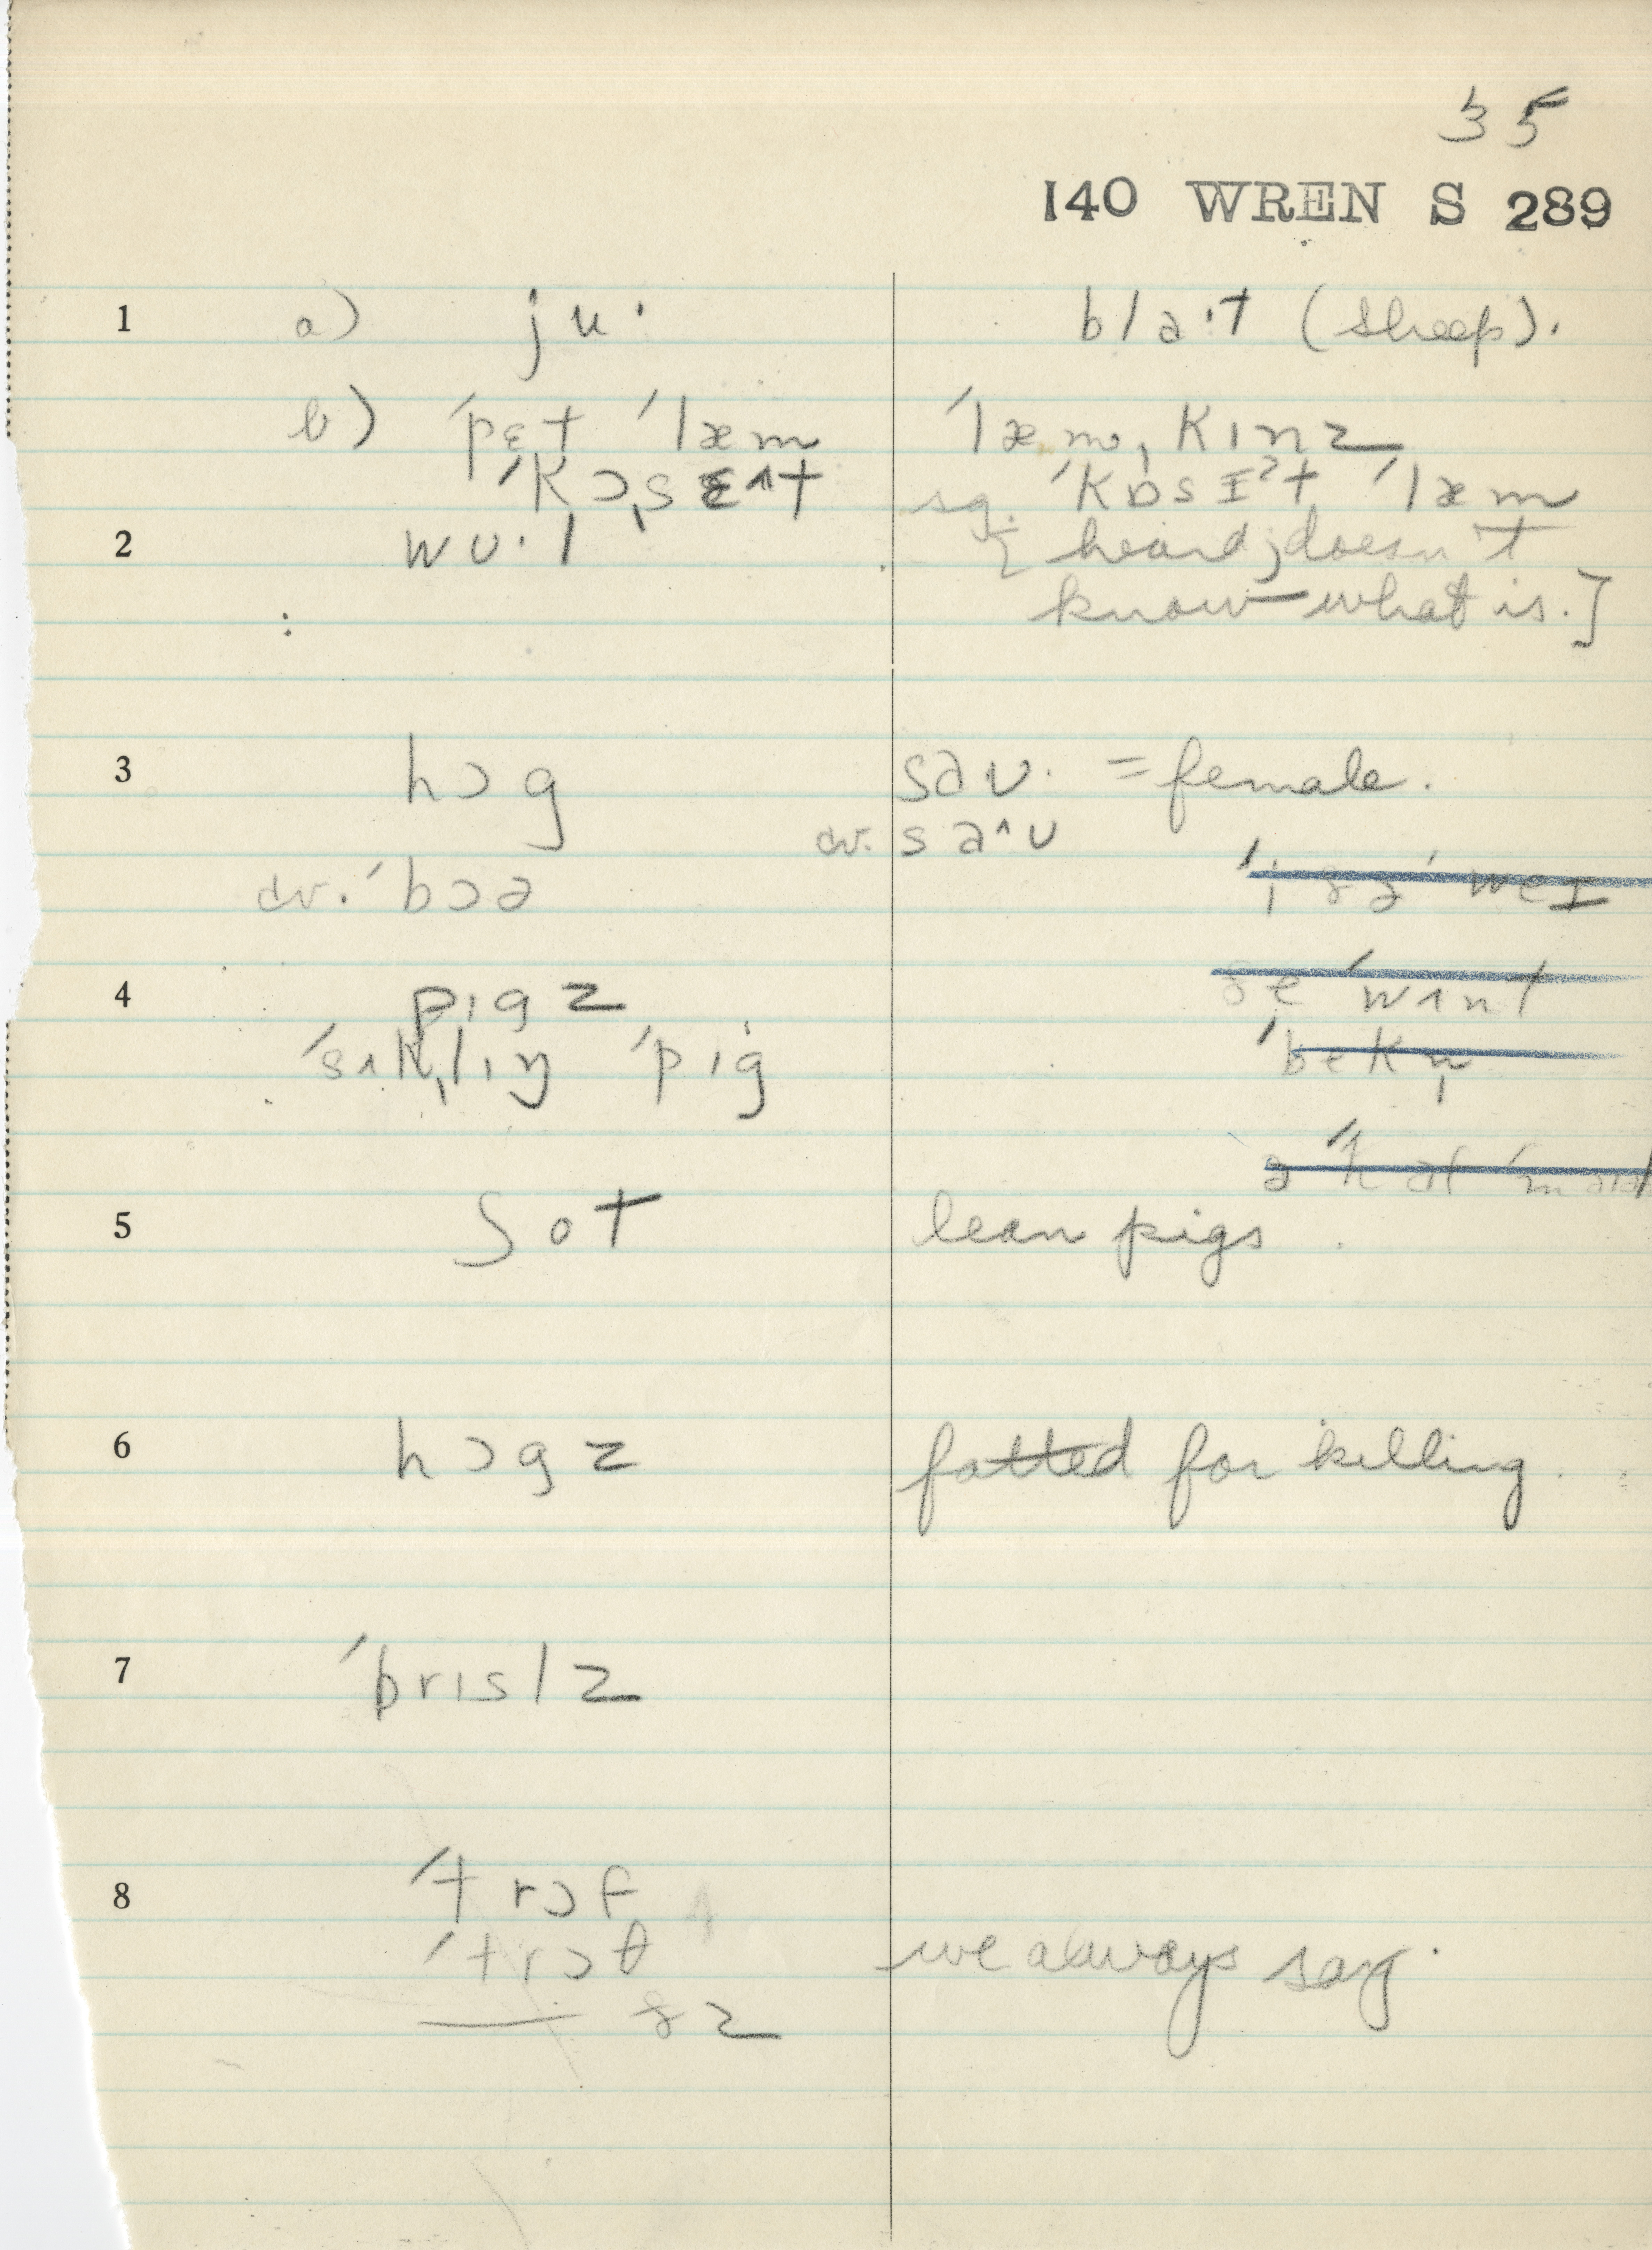 35
140 WREN S 289
1 a) ju· bla·t (sheep).
b) ˈpɛt ˈlæm ˈlæm, kɪnz
sg. ˈkɒsɪˀt ˈlæm
2 wʊ·l [heard; doesn't
know what is.]
3 hɔg saʊ· = female.
cv. saˆʊ
cv. ˈbɔə
4 pɪgz
ˈsʌk̩lɪŋ ˈpɪg
ˈbekn̩
5 ʃot lean pigs
6 hɔgz fatted for killing.
7 ˈbrɪslz
8 ˈtrɔf
ˈtrɔθ we always say.
— ðz